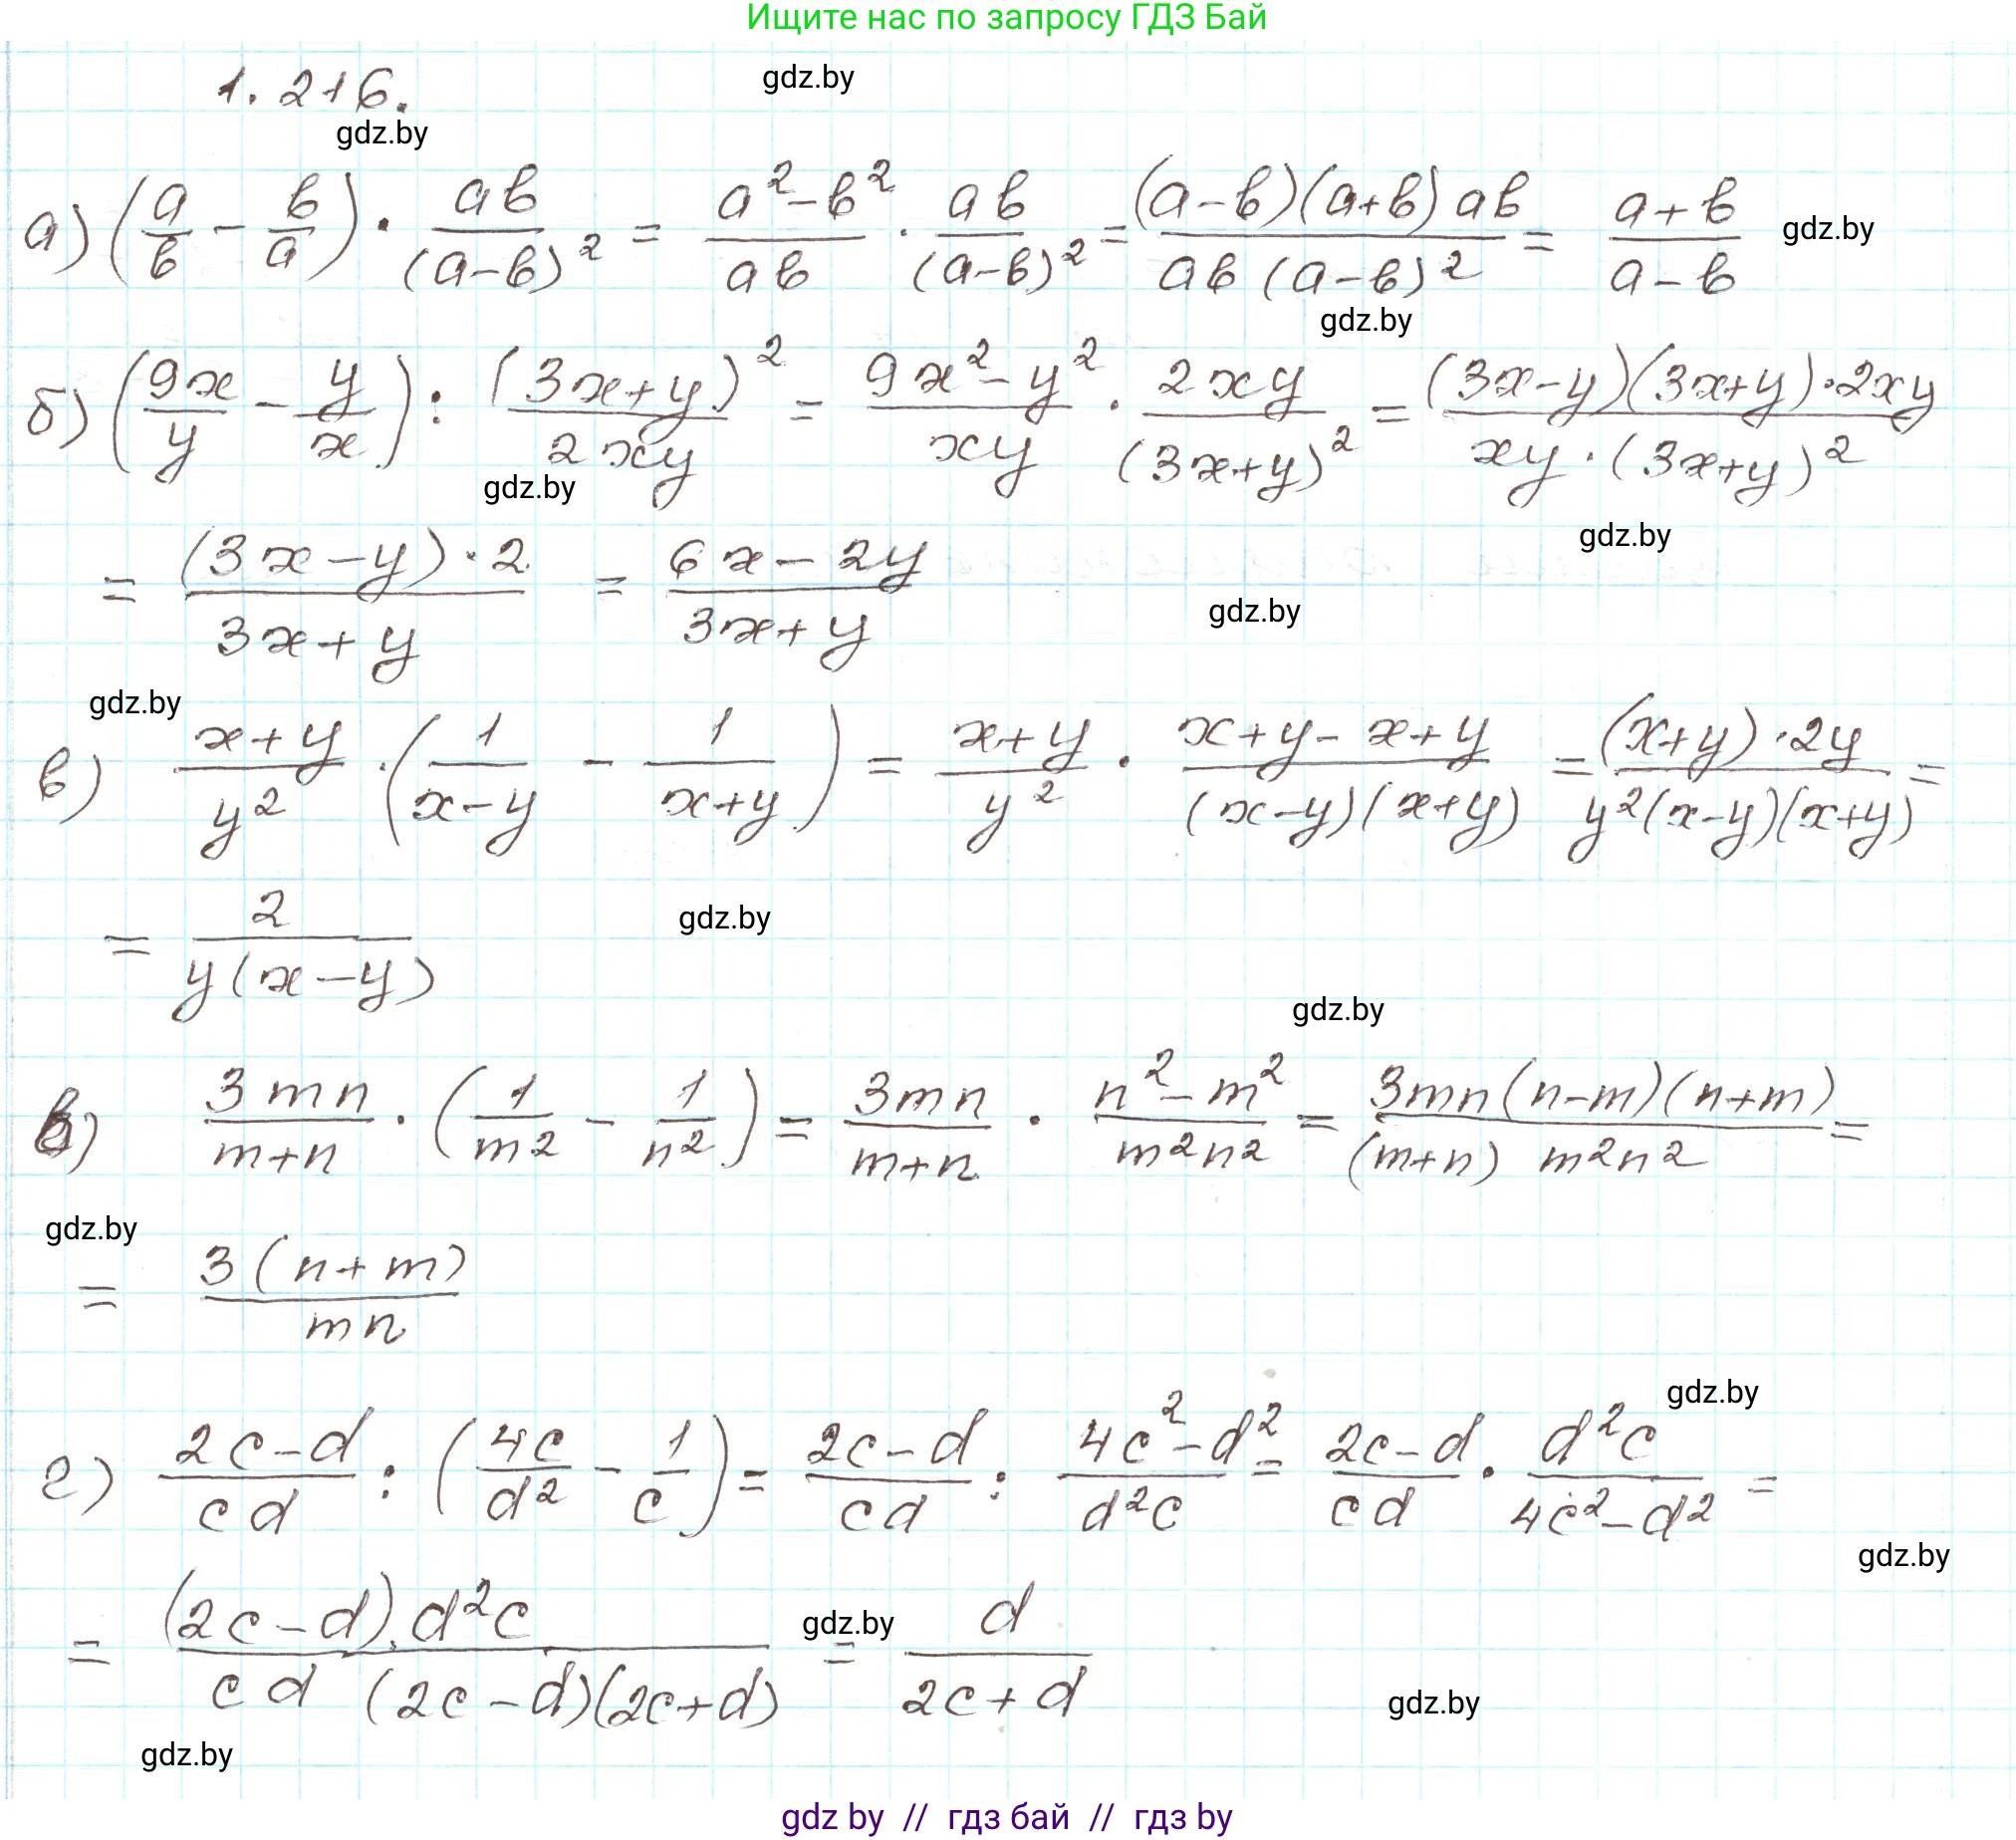 Ищите нас по запросу ГДЗ Бай
1.216.
gdz.by
gdz.by
а) (a/b - b/a) · ab/(a-b)² = (a²-b²)/ab · ab/(a-b)² = (a-b)(a+b)ab/ab(a-b)² = (a+b)/(a-b)
gdz.by
gdz.by
б) (9x/y - y/x) : (3x+y)²/2xy = (9x²-y²)/xy · 2xy/(3x+y)² = (3x-y)(3x+y)·2xy/xy·(3x+y)²
gdz.by
gdz.by
= (3x-y)·2/(3x+y) = (6x-2y)/(3x+y)
gdz.by
gdz.by
в) (x+y)/y² · (1/(x-y) - 1/(x+y)) = (x+y)/y² · (x+y-x+y)/(x-y)(x+y) = (x+y)·2y/y²(x-y)(x+y) =
= 2/y(x-y)
gdz.by
gdz.by
в) 3mn/(m+n) · (1/m² - 1/n²) = 3mn/(m+n) · (n²-m²)/m²n² = 3mn(n-m)(n+m)/(m+n) m²n² =
gdz.by
= 3(n+m)/mn
gdz.by
г) (2c-d)/cd : (4c/d² - 1/c) = (2c-d)/cd : (4c²-d²)/d²c = (2c-d)/cd · d²c/(4c²-d²) =
gdz.by
= (2c-d)·d²c/cd(2c-d)(2c+d) = d/(2c+d)
gdz.by
gdz.by
gdz.by
gdz by // гдз бай // гдз by